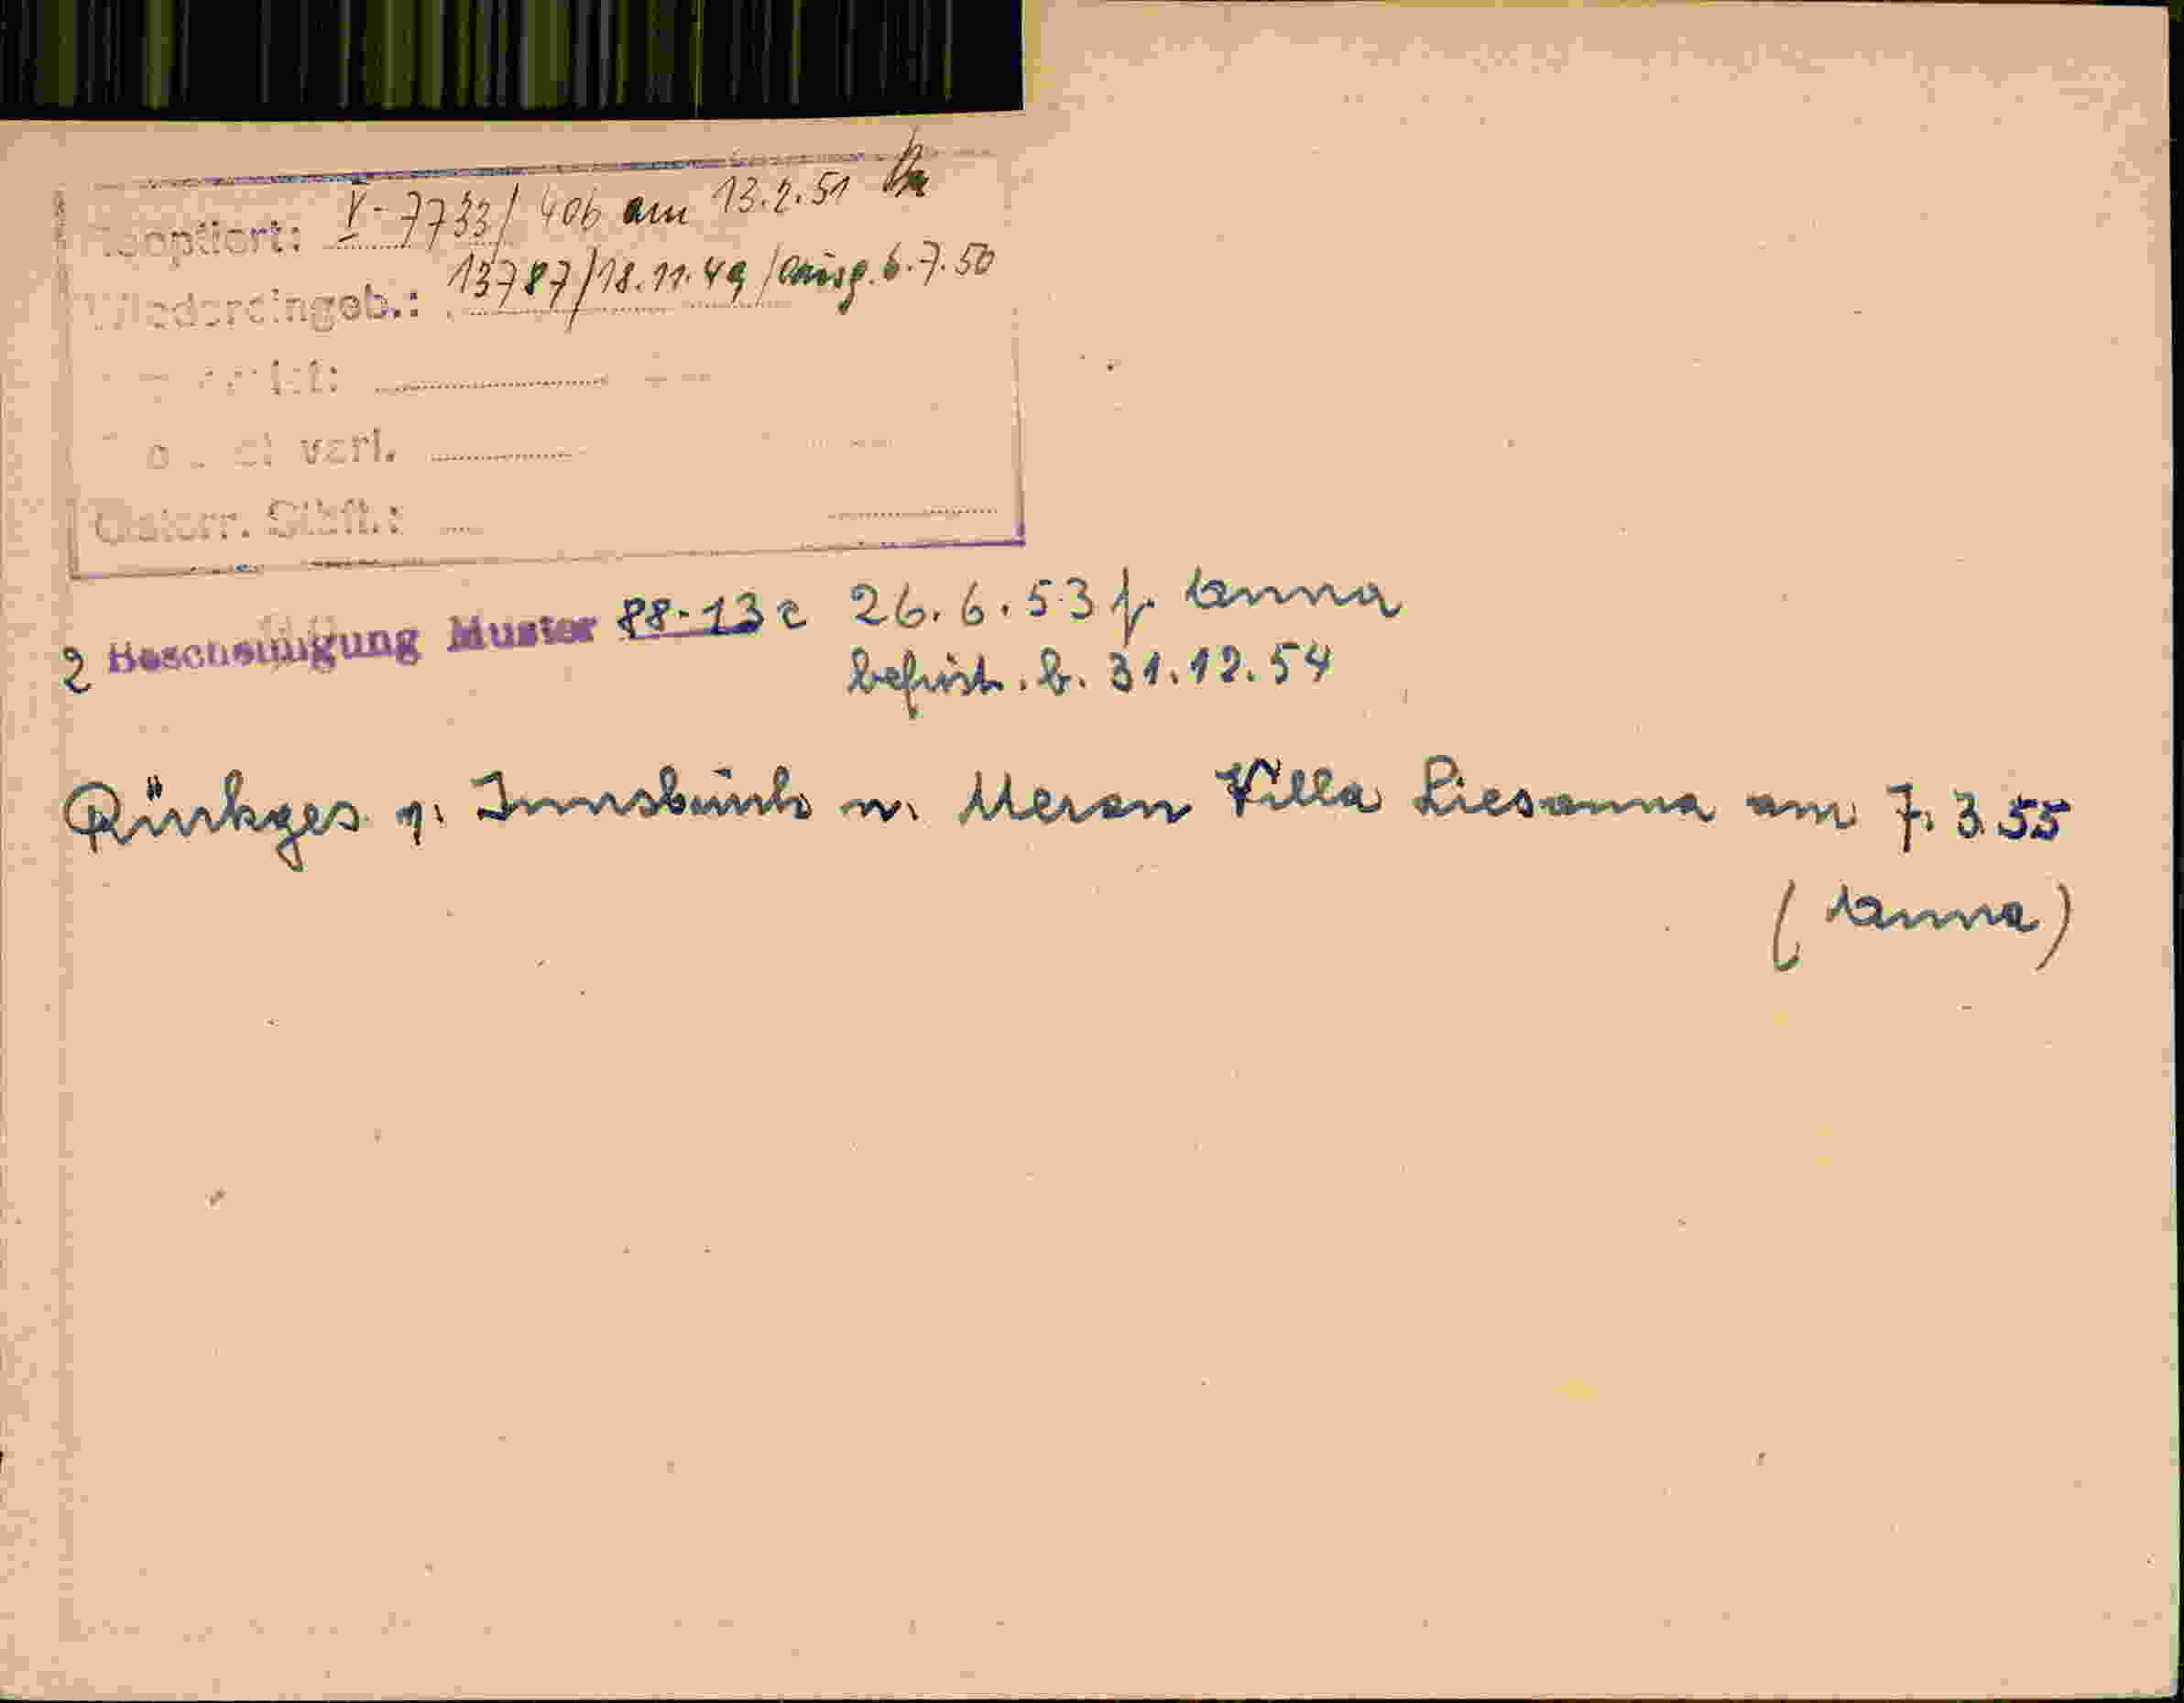 Reoptiert: V-7733/40b am 13.2.51
Wiedereingeb.: 13787/18.11.49/ausg. 6.7.50
verl.
Österr. Stbft.:
2 Bescheinigung Muster 88-13c 26.6.53 f. Anna
befrist. b. 31.12.54
Rückges. v. Innsbruck n. Meran Villa Liesanna am 7.3.55
(Anna)